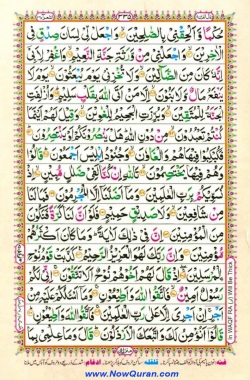 حُكْمًا وَّاَلْحِقْنِیْ بِالصّٰلِحِیْنَ وَاجْعَلْ لِّیْ لِسَانَ صِدْقٍ فِی
الْاٰخِرِیْنَ وَاجْعَلْنِیْ مِنْ وَّرَثَةِ جَنَّةِ النَّعِیْمِ وَاغْفِرْ لِاَبِیْۤ
اِنَّهٗ كَانَ مِنَ الضَّآلِّیْنَ وَلَا تُخْزِنِیْ یَوْمَ یُبْعَثُوْنَ یَوْمَ لَا
یَنْفَعُ مَالٌ وَّلَا بَنُوْنَ اِلَّا مَنْ اَتَی اللّٰهَ بِقَلْبٍ سَلِیْمٍ وَاُزْلِفَتِ
الْجَنَّةُ لِلْمُتَّقِیْنَ وَبُرِّزَتِ الْجَحِیْمُ لِلْغٰوِیْنَ وَقِیْلَ لَهُمْ اَیْنَمَا
كُنْتُمْ تَعْبُدُوْنَ مِنْ دُوْنِ اللّٰهِ هَلْ یَنْصُرُوْنَكُمْ اَوْ یَنْتَصِرُوْنَ
فَكُبْكِبُوْا فِیْهَا هُمْ وَالْغَاوٗنَ وَجُنُوْدُ اِبْلِیْسَ اَجْمَعُوْنَ قَالُوْا
وَهُمْ فِیْهَا یَخْتَصِمُوْنَ تَاللّٰهِ اِنْ كُنَّا لَفِیْ ضَلٰلٍ مُّبِیْنٍ اِذْ
نُسَوِّیْكُمْ بِرَبِّ الْعٰلَمِیْنَ وَمَاۤ اَضَلَّنَاۤ اِلَّا الْمُجْرِمُوْنَ فَمَا لَنَا
مِنْ شَافِعِیْنَ وَلَا صَدِیْقٍ حَمِیْمٍ فَلَوْ اَنَّ لَنَا كَرَّةً فَنَكُوْنَ
مِنَ الْمُؤْمِنِیْنَ اِنَّ فِیْ ذٰلِكَ لَاٰیَةً وَمَا كَانَ اَكْثَرُهُمْ
مُّؤْمِنِیْنَ وَاِنَّ رَبَّكَ لَهُوَ الْعَزِیْزُ الرَّحِیْمُ كَذَّبَتْ قَوْمُ نُوْحِ
الْمُرْسَلِیْنَ اِذْ قَالَ لَهُمْ اَخُوْهُمْ نُوْحٌ اَلَا تَتَّقُوْنَ اِنِّیْ لَكُمْ
رَسُوْلٌ اَمِیْنٌ فَاتَّقُوا اللّٰهَ وَاَطِیْعُوْنِ وَمَاۤ اَسْـَٔلُكُمْ عَلَیْهِ مِنْ
اَجْرٍ اِنْ اَجْرِیَ اِلَّا عَلٰی رَبِّ الْعٰلَمِیْنَ فَاتَّقُوا اللّٰهَ وَاَطِیْعُوْنِ
قَالُوْۤا اَنُؤْمِنُ لَكَ وَاتَّبَعَكَ الْاَرْذَلُوْنَ قَالَ وَمَا عِلْمِیْ بِمَا
www.NowQuran.com